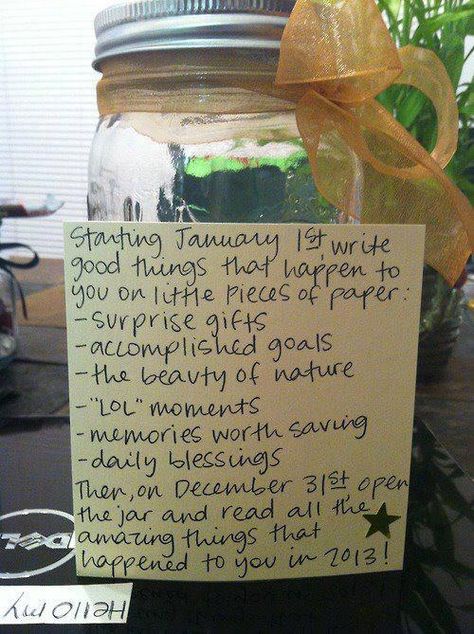 Starting January 1st, write
good things that happen to
you on little pieces of paper:
- surprise gifts
- accomplished goals
- the beauty of nature
- "LOL" moments
- memories worth saving
- daily blessings
Then, on December 31st open
the jar and read all the
amazing things that
happened to you in 2013!
DELL
HELLO my